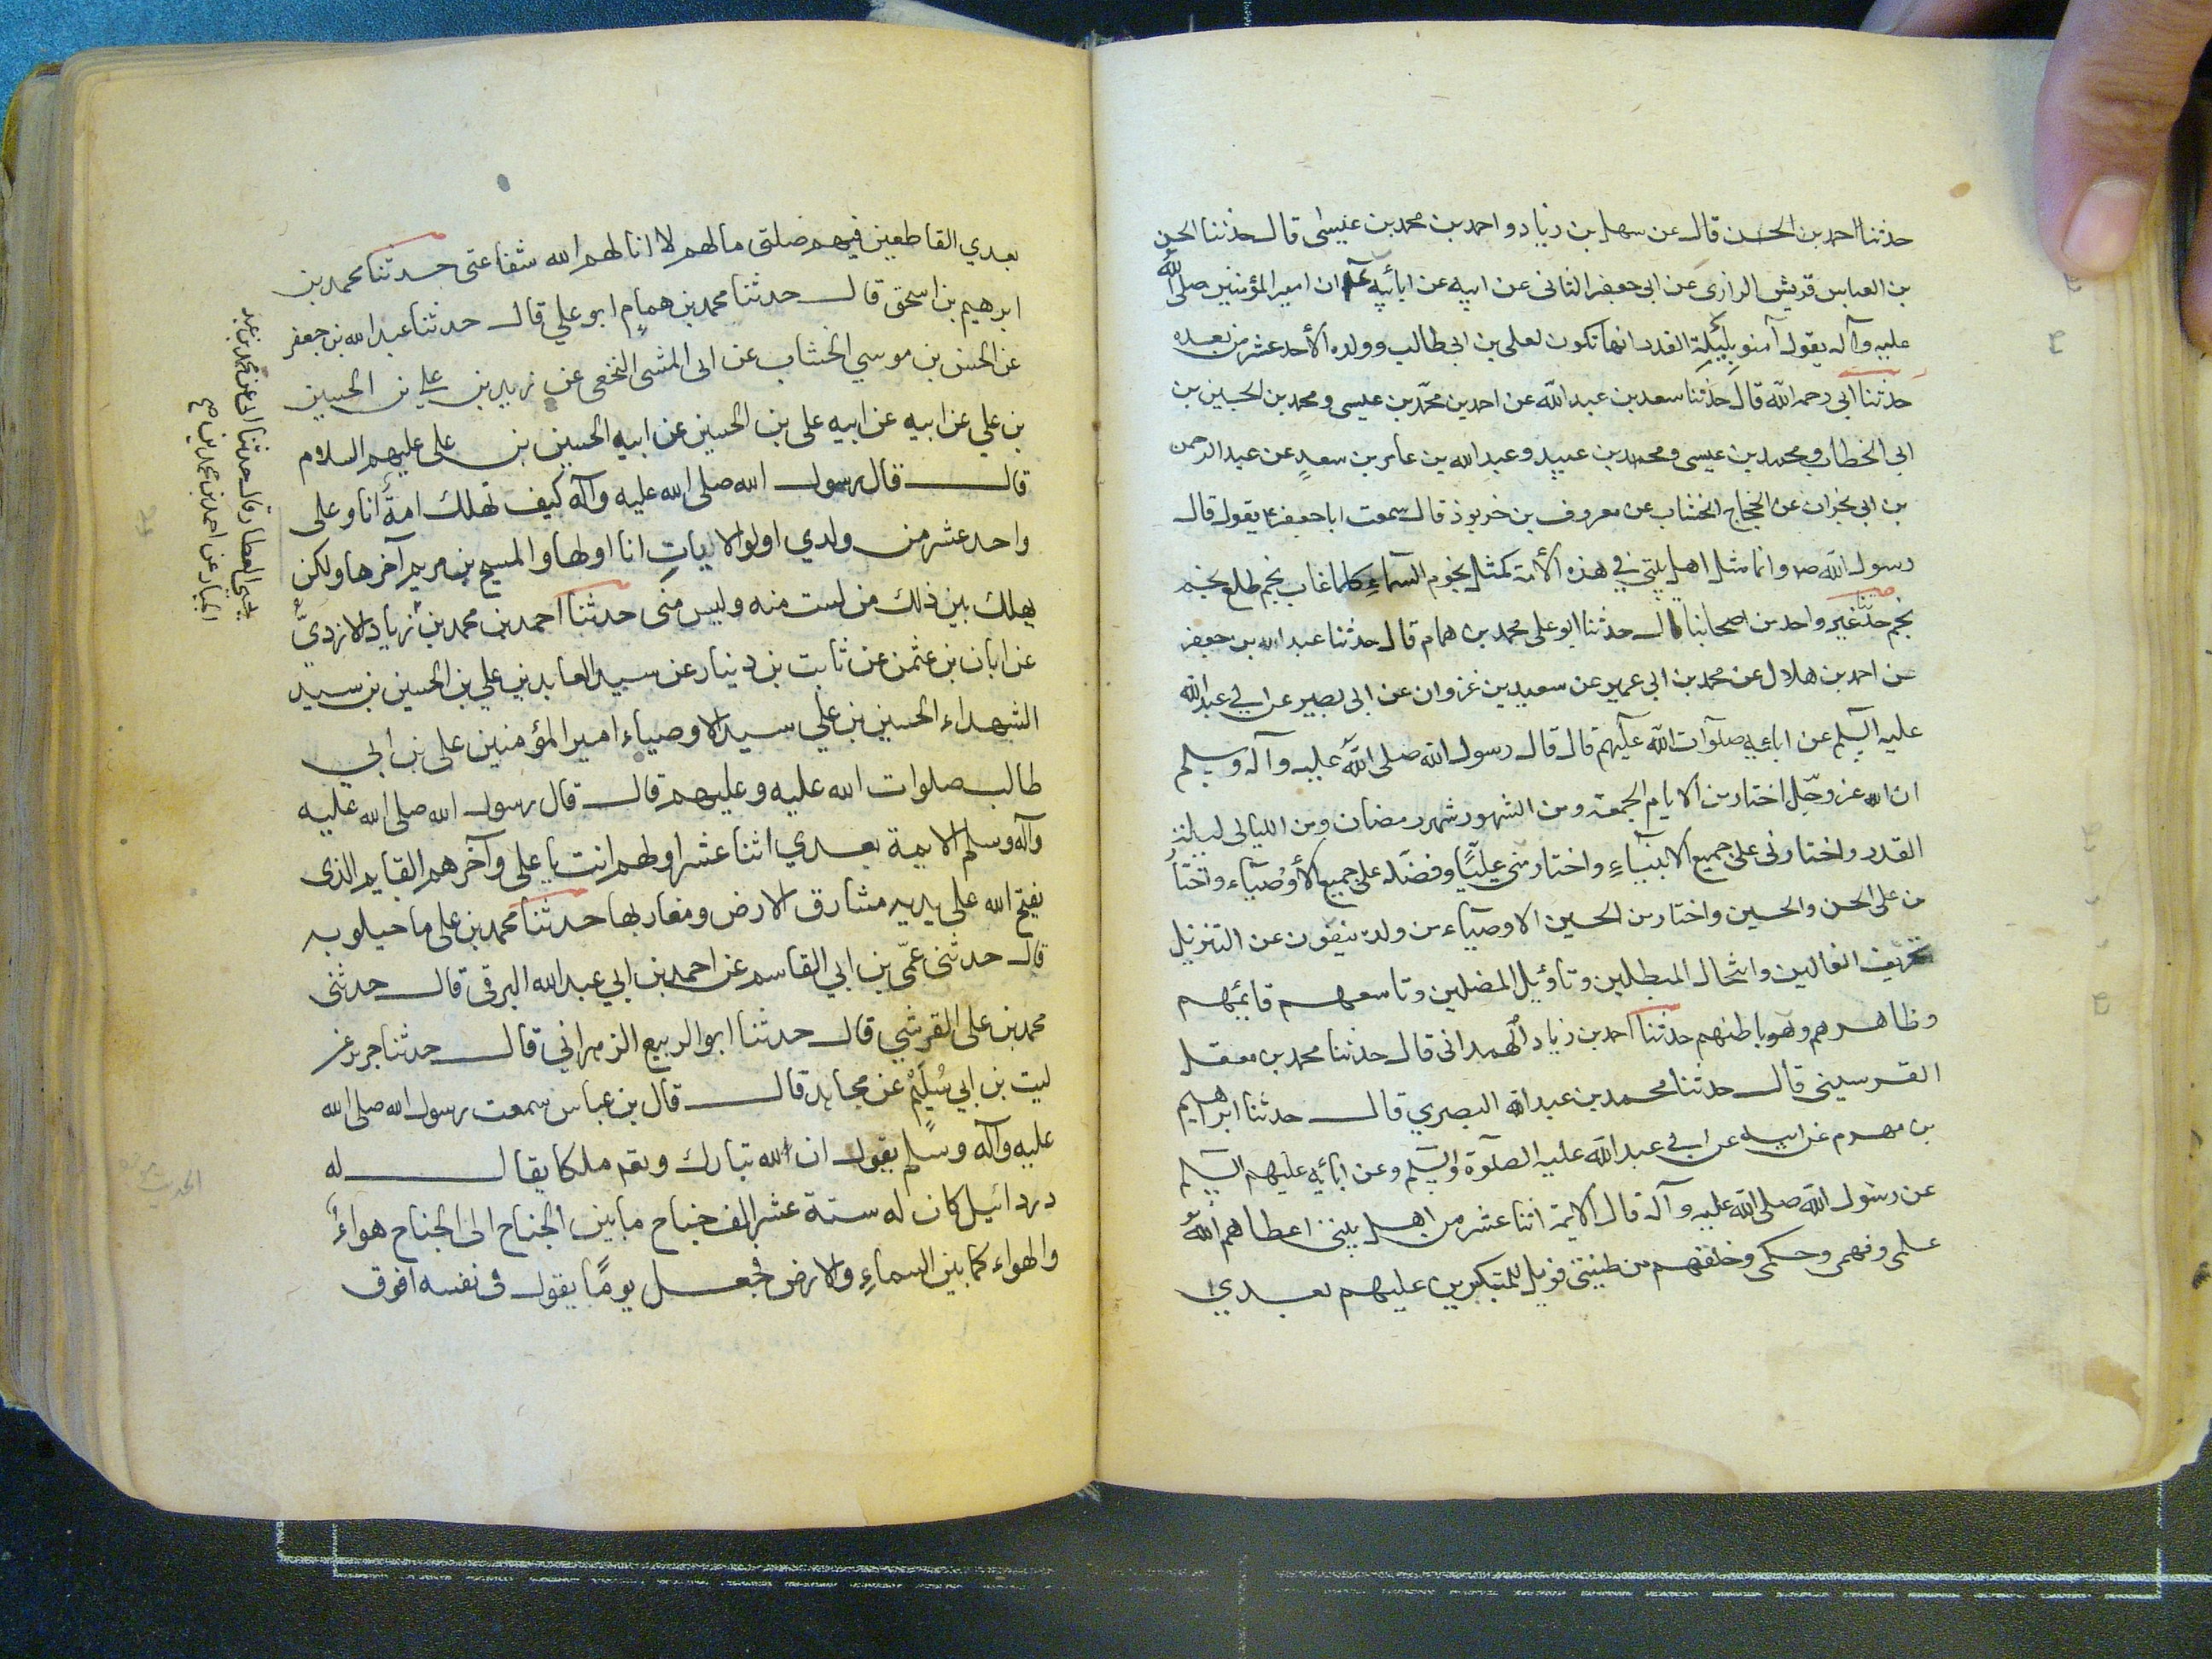 حدثنا احمد بن الحسن قال عن سهل بن زياد و احمد بن محمد بن عيسى قال حدثنا الحسن
بن العباس قريش الرازى عن ابى جعفر الثانى عن ابيه عن ابائيه ان امير المؤمنين صلى الله
عليه وآله يقول آمنو بليلة القدر انها تكون لعلى بن ابى طالب وولده الأحد عشر من بعده
حدثنا ابى رحمه الله قال حدثنا سعد بن عبد الله عن احمد بن محمد بن عيسى و محمد بن الحسين بن
ابى الخطاب و محمد بن عيسى و محمد بن عبيد و عبد الله بن عامر بن سعد عن عبد الرحمن
بن ابى نجران عن الحجاج الخشاب عن معروف بن خربوذ قال سمعت ابا جعفر ع يقول قال
رسول الله ص وانما مثل اهل بيتى فى هذه الأمة كمثل نجوم السماء كلما غاب نجم طلع نجم
نجم حدثنا غير واحد من اصحابنا قال حدثنا ابو على محمد بن همام قال حدثنا عبد الله بن جعفر
عن احمد بن هلال عن محمد بن ابى عمير عن سعيد بن غزوان عن ابى بصير عن ابى عبد الله
عليه السلم عن ابائه صلوات الله عليهم قال قال رسول الله صلى الله عليه وآله وسلم
ان الله عز وجل اختار من الايام الجمعة ومن الشهور شهر رمضان ومن الليالى ليلة
القدر واختارنى على جميع الانبياء واختار منى عليا وفضله على جميع الأوصياء واختار
من على الحسن والحسين واختار من الحسين الاوصياء من ولده ينفون عن التنزيل
تحريف الغالين وانتحال المبطلين وتاويل المضلين وتاسعهم قائمهم
وظاهرهم وهو باطنهم حدثنا احمد بن زياد الهمدانى قال حدثنا محمد بن معقل
القرسينى قال حدثنا محمد بن عبد الله البصري قال حدثنا ابراهيم
بن مهزم عن ابيه عن ابى عبد الله عليه الصلوة والسلم وعن ابائه عليهم السلم
عن رسول الله صلى الله عليه وآله قال الائمة اثنا عشر من اهل بيتى اعطاهم الله
علمى وفهمى وحكمى وخلقهم من طينتى فويل للمتكبرين عليهم بعدي
بعدي القاطعين فيهم صلتى مالهم لا انالهم الله شفاعتى حدثنا محمد بن
ابرهيم بن اسحق قال حدثنا محمد بن همام ابو علي قال حدثنا عبد الله بن جعفر
عن الحسن بن موسي الخشاب عن ابى المثنى النخعى عن زيد بن علي بن الحسين
بن علي عن ابيه عن ابيه على بن الحسين عن ابيه الحسين بن على عليهم السلام
قال قال رسول الله صلى الله عليه وآله كيف تهلك امة انا وعلى
واحد عشر من ولدي اولوا الالباب انا اولها والمسيح بن مريم آخرها ولكن
يهلك بين ذلك من لست منه وليس منى حدثنا احمد بن محمد بن زياد الازديّ
عن ابان بن عثمن عن ثابت بن دينار عن سيد العابدين علي بن الحسين بن سيد
الشهداء الحسين بن علي سيد الاوصياء امير المؤمنين على بن ابي
طالب صلوات الله عليه وعليهم قال قال رسول الله صلى الله عليه
وآله وسلم الايمة بعدي اثنا عشر اولهم انت يا على وآخرهم القايم الذى
يفتح الله على يديه مشارق الارض ومغاربها حدثنا محمد بن على ماجيلويه
قال حدثنى عمّى بن ابي القاسم عن احمد بن ابي عبد الله البرقى قال حدثنى
محمد بن على القرشي قال حدثنا ابو الربيع الزهراني قال حدثنا جرير عن
ليث بن ابي سُلَيْم عن مجاهد قال قال بن عباس سمعت رسول الله صلى الله
عليه وآله وسلم يقول ان الله تبارك وتعه ملكا يقال له
دردائيل كان له ستة عشر الف جناح ما بين الجناح الى الجناح هواء
والهواء كما بين السماء والارض فجعل يومًا يقول فى نفسه افوق
يحيى العطار قال حدثنا ابى عن محمد بن عبد
الجبار عن احمد بن محمد بن صح